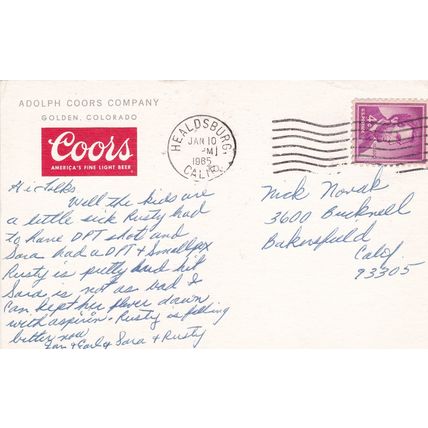 ADOLPH COORS COMPANY
GOLDEN, COLORADO
Coors
AMERICA'S FINE LIGHT BEER
HEALDSBURG,
JAN 10
PM
1965
CALIF.
4¢
Hi Folks
Well the kids are
a little sick Rusty had
to have DPT shot and
Sara had a DPT & Smallpx
Rusty is pretty hard hit
Sara is not as bad I
can kept her fever down
with aspirin. Rusty is feeling
better now
Jan & Earl & Sara & Rusty
Nick Novak
3600 Bucknell
Bakersfield
Calif.
93305